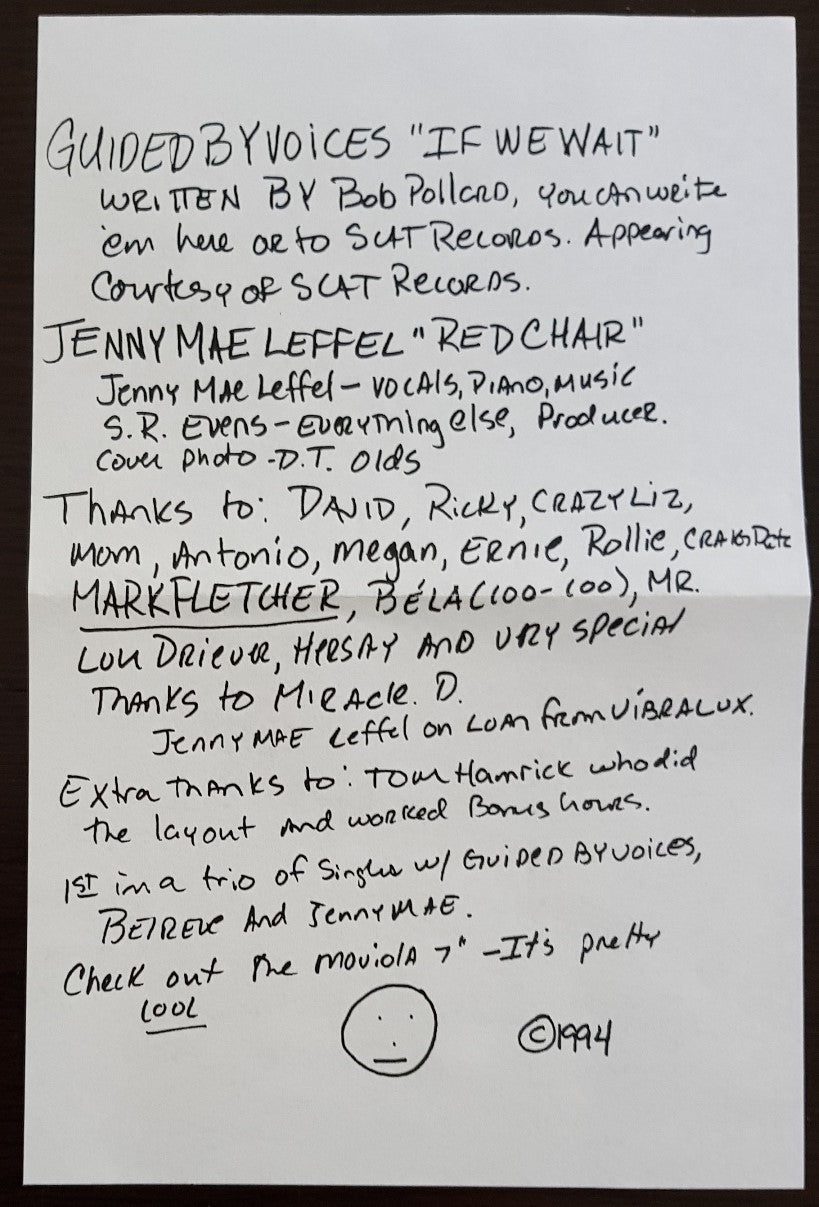 GUIDED BY VOICES "IF WE WAIT"
WRITTEN BY Bob Pollard, you can write
'em here or to SCAT Records. Appearing
Courtesy of SCAT Records.
JENNY MAE LEFFEL "RED CHAIR"
Jenny Mae Leffel - vocals, piano, music
S.R. Evens - everything else, Producer.
Cover photo - D.T. Olds
Thanks to: David, Ricky, Crazy Liz,
mom, Antonio, megan, Ernie, Rollie,
MARK FLETCHER, BÉLA (coo-coo), MR.
Lou Driever, Hersay And vry special
Thanks to Miracle. D.
Jenny Mae Leffel on loan from Vibralux.
Extra thanks to: Tom Hamrick who did
the layout and worked Bonus hours.
1ST in a trio of Singles w/ Guided By Voices,
And Jenny Mae.
Check out the moviola 7" - It's pretty
cool
©1994